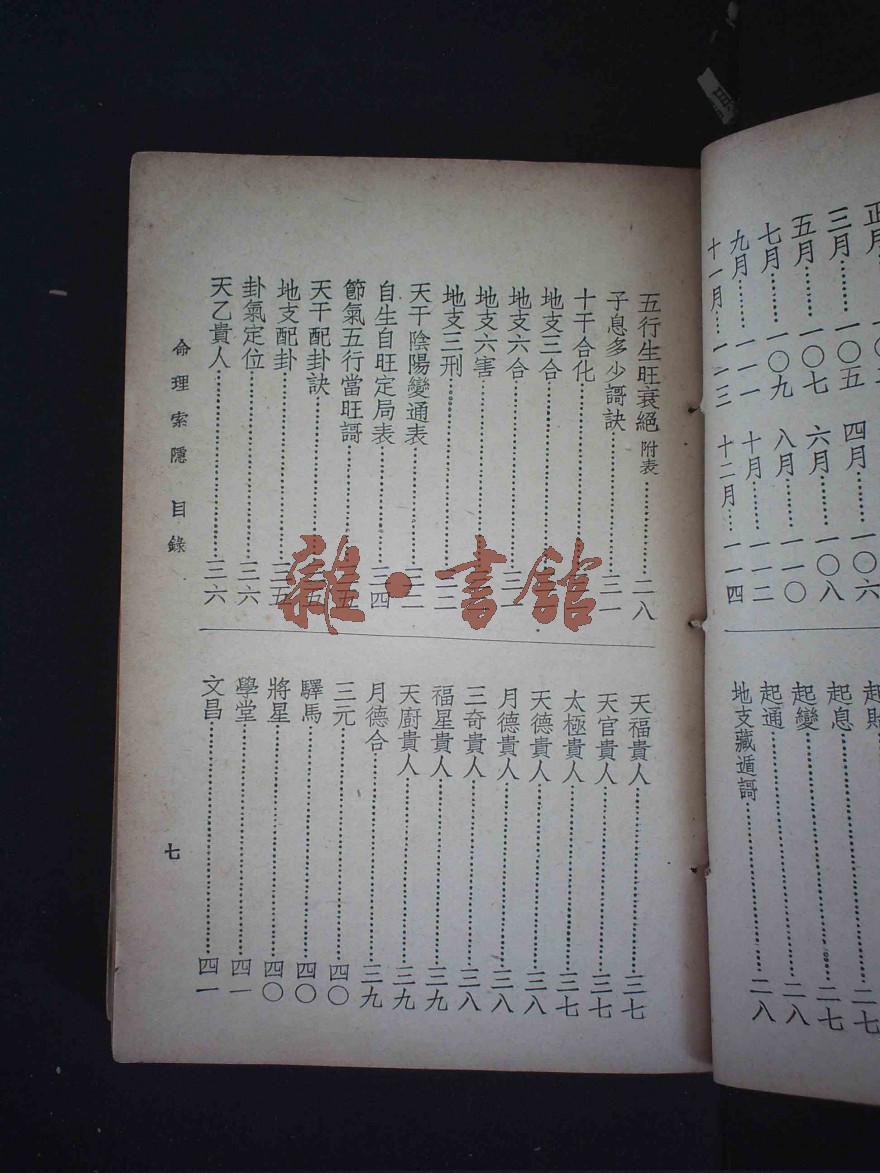 正月
三月……一〇五 四月……一〇六
五月……一〇七 六月……一〇八
七月……一〇九 八月……一一〇
九月……一一一 十月……一一二
十一月……一一三 十二月……一一四
起息……二七
起變……二八
起通……二八
地支藏遁謌……二八
五行生旺衰絕附表……二八
子息多少謌訣……三一
十干合化……
地支三合……
地支六合……
地支六害……
地支三刑……
天干陰陽變通表……
自生自旺定局表……三四
節氣五行當旺謌……
天干配卦訣……
地支配卦……三五
卦氣定位……三六
天乙貴人……三六
天福貴人……三七
天官貴人……三七
太極貴人……三七
天德貴人……三八
月德貴人……三八
三奇貴人……三八
福星貴人……三九
天廚貴人……三九
月德合……三九
三元……四〇
驛馬……四〇
將星……四〇
學堂……四一
文昌……四一
命理索隱 目錄
七
雜·書館